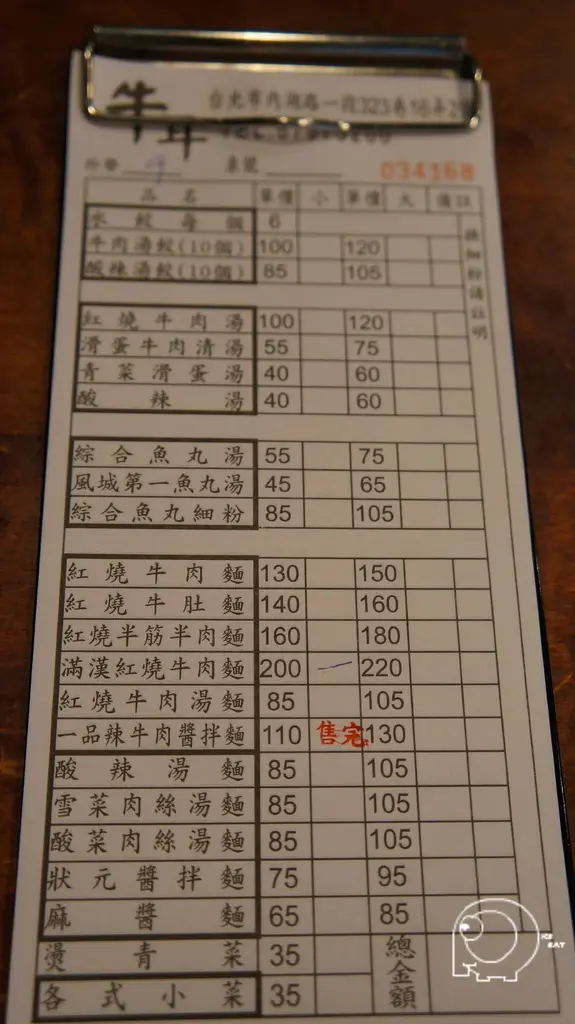 台北市內湖路一段323巷16弄2
外帶 桌號
034168
品名 單價 小 單價 大 備註
水餃每個 6
牛肉湯餃(10個) 100 120
酸辣湯餃(10個) 85 105
換細粉請註明
紅燒牛肉湯 100 120
滑蛋牛肉清湯 55 75
青菜滑蛋湯 40 60
酸辣湯 40 60
綜合魚丸湯 55 75
風城第一魚丸湯 45 65
綜合魚丸細粉 85 105
紅燒牛肉麵 130 150
紅燒牛肚麵 140 160
紅燒半筋半肉麵 160 180
滿漢紅燒牛肉麵 200 一 220
紅燒牛肉湯麵 85 105
一品辣牛肉醬拌麵 110 售完 130
酸辣湯麵 85 105
雪菜肉絲湯麵 85 105
酸菜肉絲湯麵 85 105
狀元醬拌麵 75 95
麻醬麵 65 85
燙青菜 35 總金額
各式小菜 35